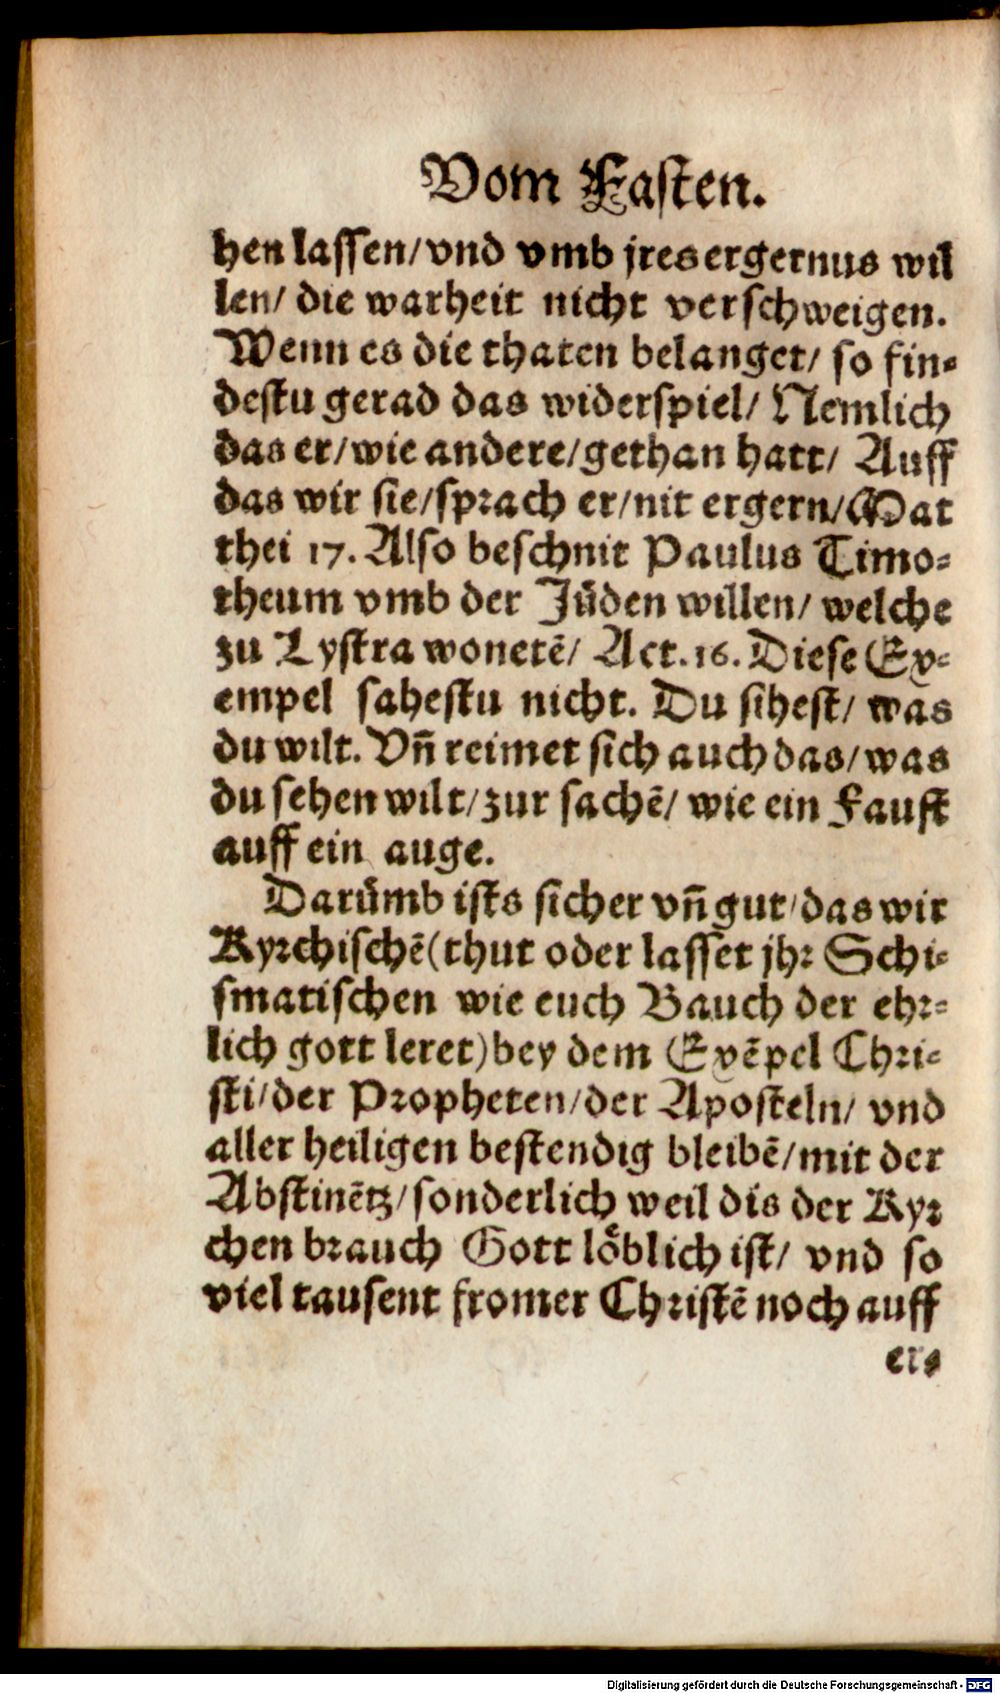 Vom Fasten.
hen lassen/ vnd vmb jres ergernus wil
len/ die warheit nicht verschweigen.
Wenn es die thaten belanget/ so fin-
destu gerad das widerspiel/ Nemlich
das er/ wie andere/ gethan hatt/ Auff
das wir sie/ sprach er/ nit ergern/ Mat
thei 17. Also beschnit Paulus Timo-
theum vmb der Jůden willen/ welche
zu Lystra wonetē/ Act. 16. Diese Ex-
empel sahestu nicht. Du sihest/ was
du wilt. Vñ reimet sich auch das/ was
du sehen wilt/ zur sachē/ wie ein Faust
auff ein auge.
Darůmb ists sicher vñ gut/ das wir
Kyrchischē (thut oder lasset jhr Schi-
smatischen wie euch Bauch der ehr-
lich gott leret) bey dem Exēpel Chri-
sti/ der Propheten/ der Aposteln/ vnd
aller heiligen bestendig bleibē/ mit der
Abstinētz/ sonderlich weil dis der Kyr
chen brauch Gott löblich ist/ vnd so
viel tausent fromer Christē noch auff
er-
Digitalisierung gefördert durch die Deutsche Forschungsgemeinschaft - DFG